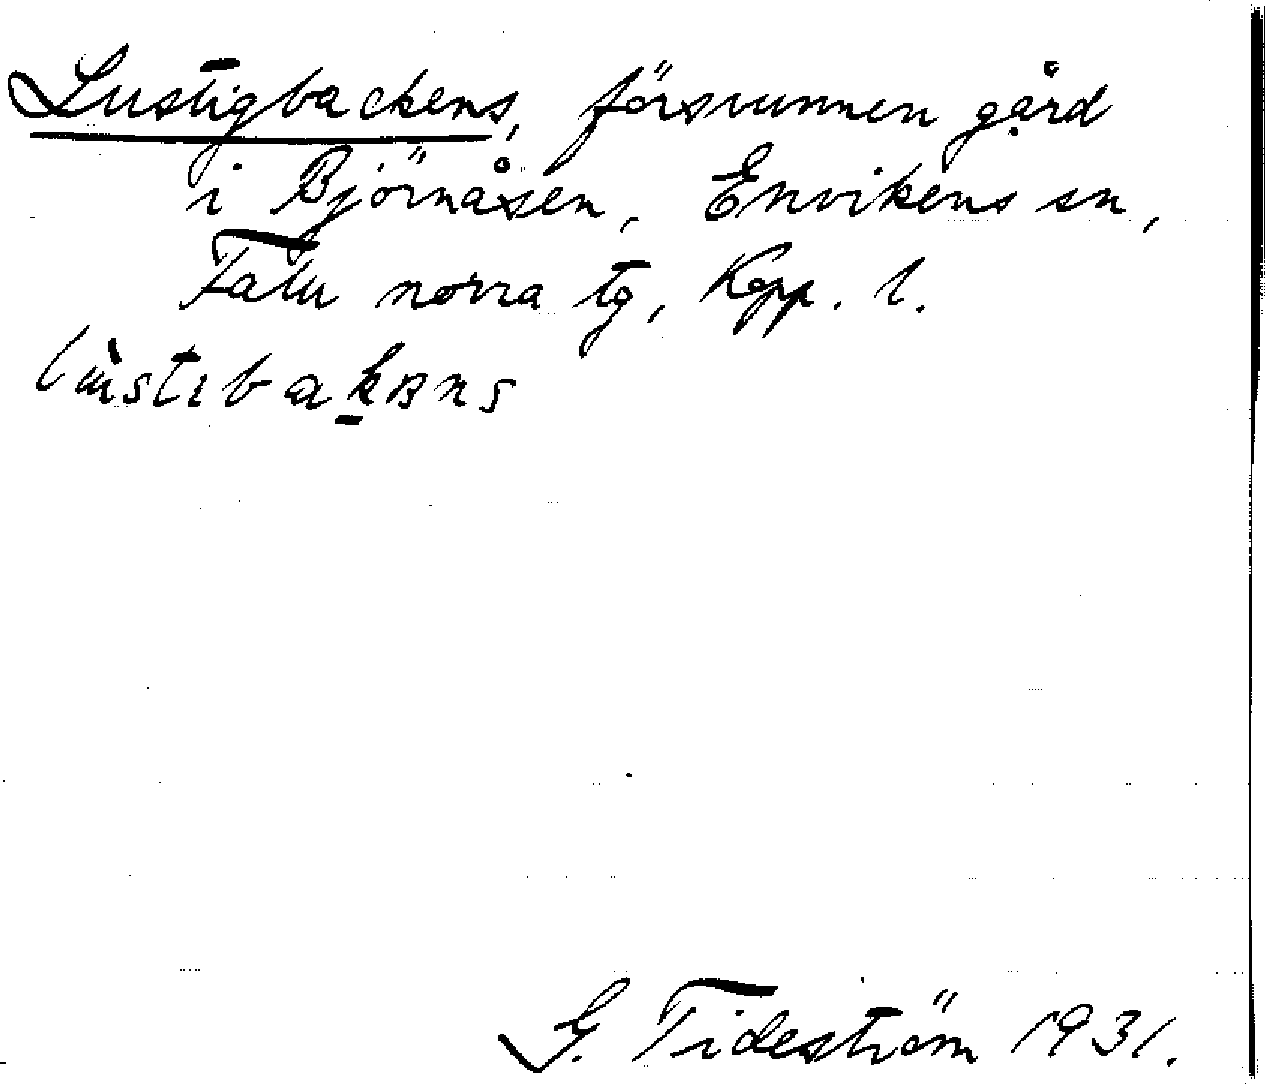 Lustigbackens, försvunnen gård
i Björnåsen, Envikens sn,
Falu norra tg, Kopp. l.
G. Tideström 1931.